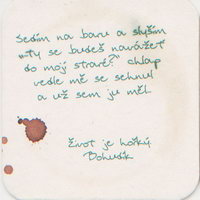 Sedím na baru a slyším
„Ty se budeš navážet
do mojí stravě?" chlap
vedle mě se sehnul
a už sem ju měl
Život je hořký
Bohušík